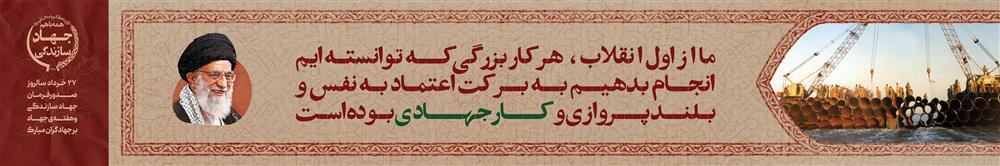 ما از اول انقلاب ، هر کار بزرگی که توانسته ایم
انجام بدهیم به برکت اعتماد به نفس و
بلندپروازی و کار جهادی بوده است
همه با هم
جهاد
سازندگی
۲۷ خرداد سالروز
صدور فرمان
جهاد سازندگی
و هفته‌ی جهاد
بر جهادگران مبارک